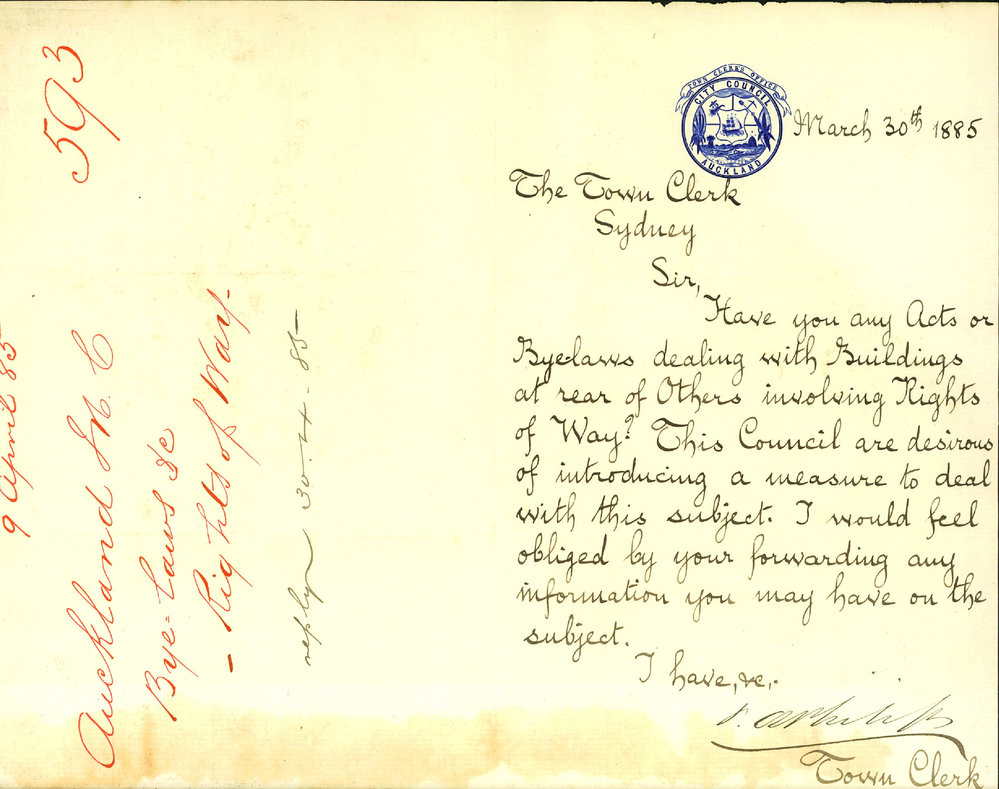 593
9 April 85
Auckland M. C
Bye-Laws &c
- Rights of Way -
reply 30.4.85-
TOWN CLERK'S OFFICE
CITY COUNCIL
AUCKLAND
March 30th 1885
The Town Clerk
Sydney
Sir,
Have you any Acts or
Bye-laws dealing with Buildings
at rear of Others involving Rights
of Way? This Council are desirous
of introducing a measure to deal
with this subject. I would feel
obliged by your forwarding any
information you may have on the
subject.
I have, &c,.
Philips
Town Clerk